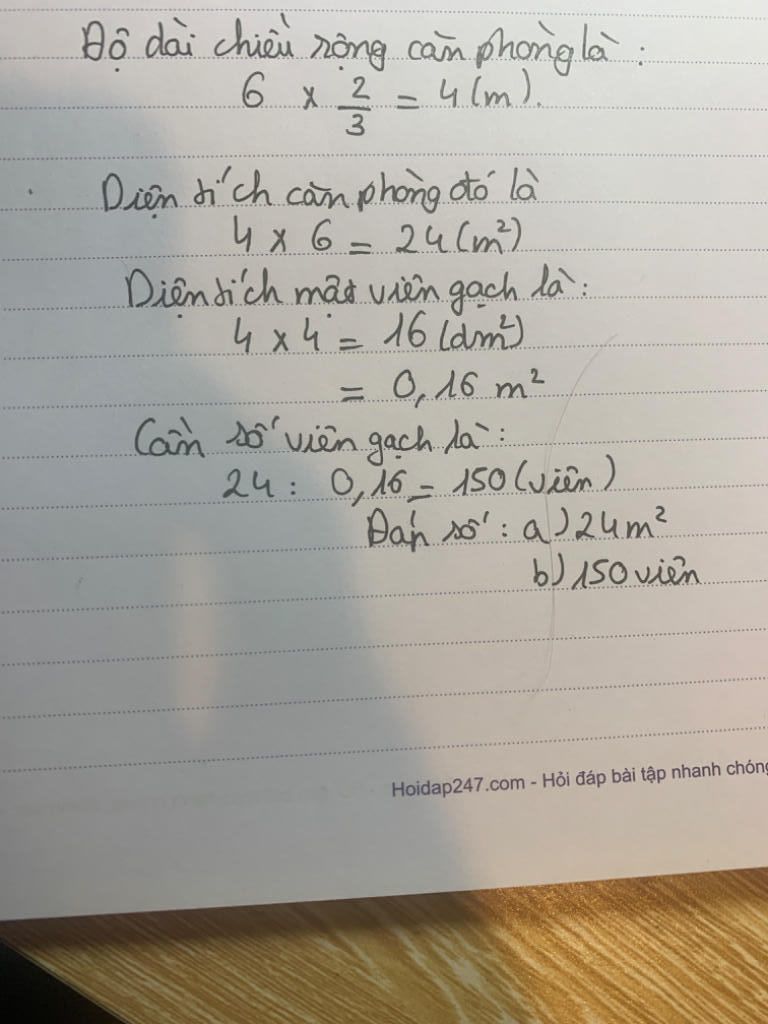 Độ dài chiều rộng căn phòng là :
6 × 2/3 = 4 (m).
Diện tích căn phòng đó là
4 × 6 = 24 (m²)
Diện tích một viên gạch là :
4 × 4 = 16 (dm²)
= 0,16 m²
Cần số viên gạch là :
24 : 0,16 = 150 (viên)
Đáp số : a) 24 m²
b) 150 viên
Hoidap247.com - Hỏi đáp bài tập nhanh chóng